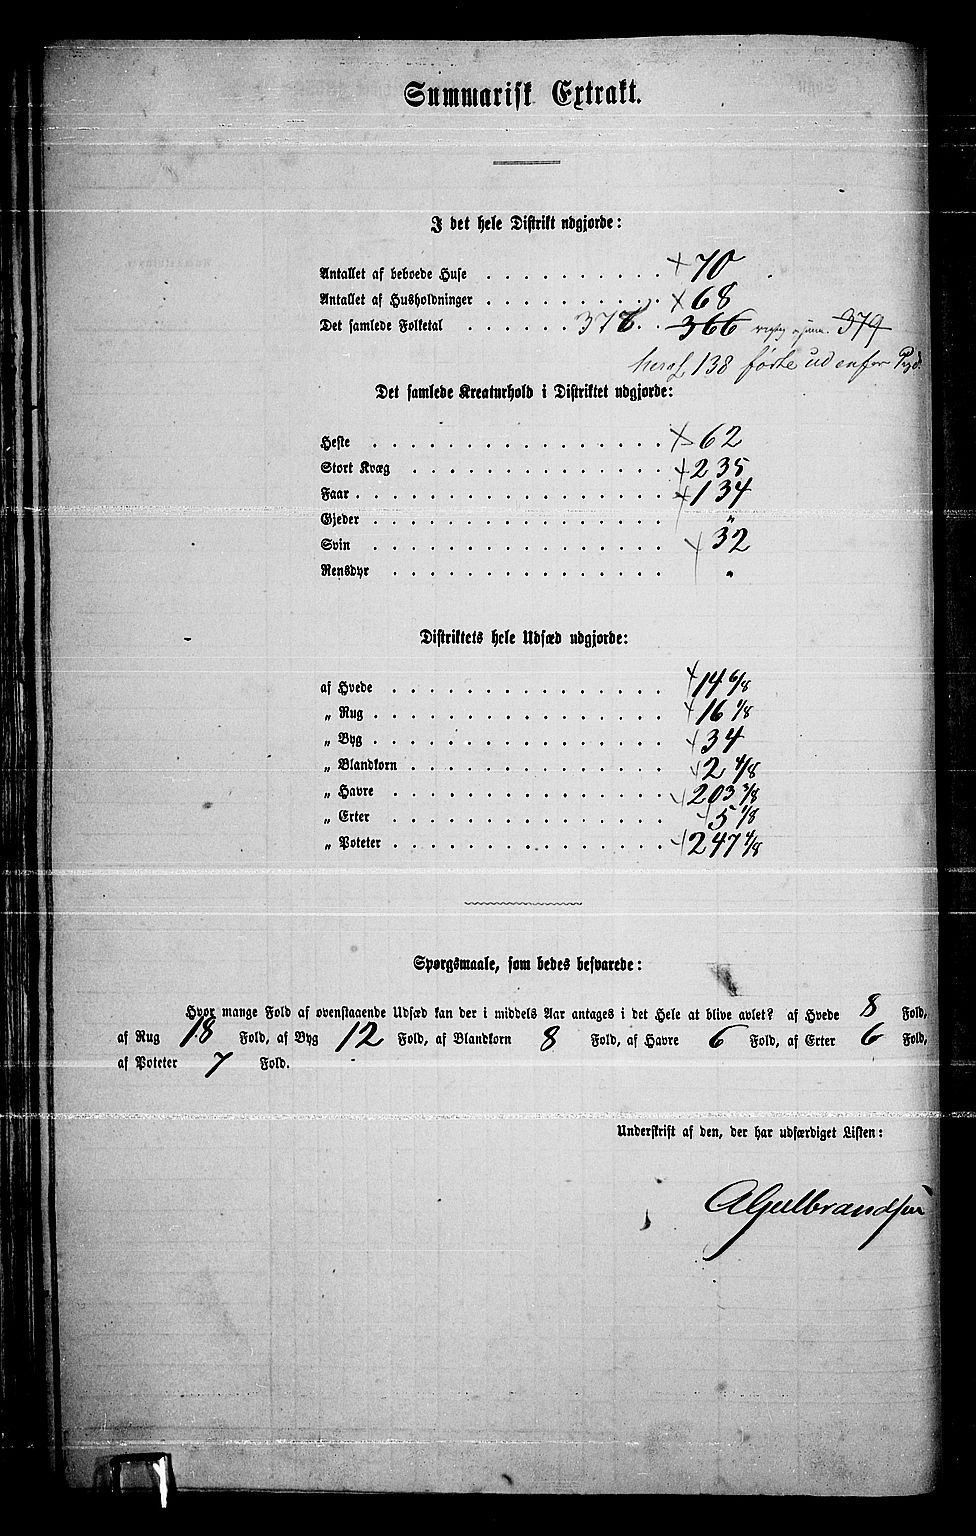 Summarisk Extrakt.
I det hele Distrikt udgjorde:
Antallet af beboede Huse . . . . . . . . . . 70
Antallet af Husholdninger . . . . . . . . . . 68
Det samlede Folketal . . . . . . 378. 366 379
heraf 138 førte udenfor
Det samlede Kreaturhold i Distriktet udgjorde:
Heste . . . . . . . . . . . . . . . . 62
Stort Kvæg . . . . . . . . . . . . . . 235
Faar . . . . . . . . . . . . . . . . . 134
Gjeder . . . . . . . . . . . . . . . . "
Svin . . . . . . . . . . . . . . . . 32
Rensdyr . . . . . . . . . . . . . . . "
Distriktets hele Udsæd udgjorde:
af Hvede . . . . . . . . . . . . . . . 14 6/8
„ Rug . . . . . . . . . . . . . . . . 16 1/8
„ Byg . . . . . . . . . . . . . . . . 34
„ Blandkorn . . . . . . . . . . . . . . 2 4/8
„ Havre . . . . . . . . . . . . . . . 203 3/8
„ Erter . . . . . . . . . . . . . . . 5 1/8
„ Poteter . . . . . . . . . . . . . . . 247 4/8
Spørgsmaale, som bedes besvarede:
Hvor mange Fold af ovenstaaende Udsæd kan der i middels Aar antages i det Hele at blive avlet? af Hvede 8 Fold,
af Rug 18 Fold, af Byg 12 Fold, af Blandkorn 8 Fold, af Havre 6 Fold, af Erter 6 Fold,
af Poteter 7 Fold.
Underskrift af den, der har udfærdiget Listen:
A Gulbrandsen